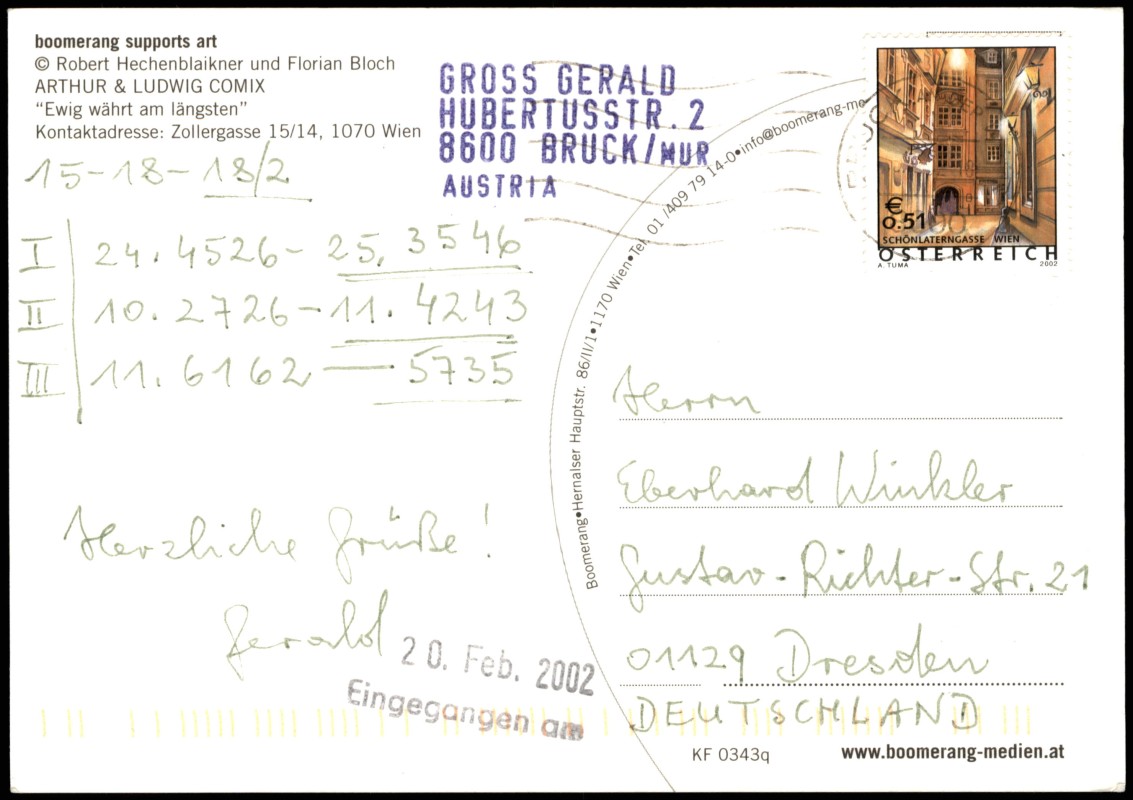 boomerang supports art
© Robert Hechenblaikner und Florian Bloch
ARTHUR & LUDWIG COMIX
“Ewig währt am längsten”
Kontaktadresse: Zollergasse 15/14, 1070 Wien
GROSS GERALD
HUBERTUSSTR. 2
8600 BRUCK/MUR
AUSTRIA
€
0.51
SCHÖNLATERNGASSE WIEN
ÖSTERREICH
A. TUMA 2002
15-18-18/2
I 24. 4526 - 25. 3546
II 10. 2726 - 11. 4243
III 11. 6162 — 5735
Herzliche Grüße!
Gerald
20. Feb. 2002
Eingegangen am
Boomerang•Hernalser Hauptstr. 86/II/1•1170 Wien•Tel. 01 /409 79 14-0•info@boomerang-me
Herrn
Eberhard Winkler
Gustav-Richter-Str. 21
01129 Dresden
DEUTSCHLAND
KF 0343q
www.boomerang-medien.at